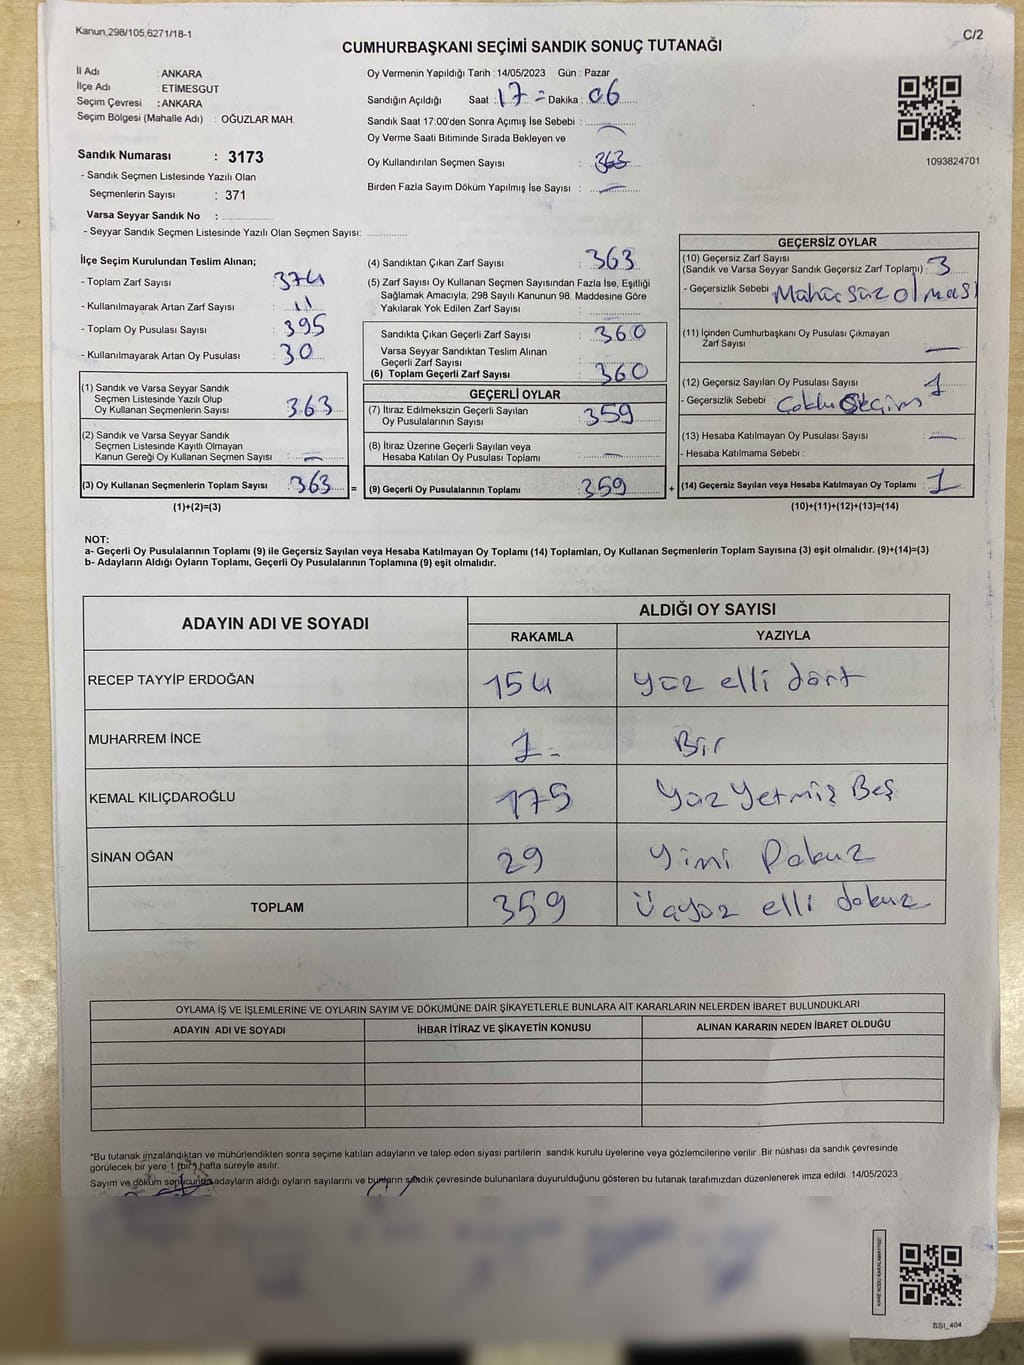 Kanun.298/105,6271/18-1
C/2
CUMHURBAŞKANI SEÇİMİ SANDIK SONUÇ TUTANAĞI
İl Adı : ANKARA
İlçe Adı : ETİMESGUT
Seçim Çevresi : ANKARA
Seçim Bölgesi (Mahalle Adı) : OĞUZLAR MAH.
Sandık Numarası : 3173
- Sandık Seçmen Listesinde Yazılı Olan
Seçmenlerin Sayısı : 371
Varsa Seyyar Sandık No :
- Seyyar Sandık Seçmen Listesinde Yazılı Olan Seçmen Sayısı:
Oy Vermenin Yapıldığı Tarih : 14/05/2023 Gün : Pazar
Sandığın Açıldığı Saat : 17 = Dakika : 06
Sandık Saat 17:00'den Sonra Açımış İse Sebebi :
Oy Verme Saati Bitiminde Sırada Bekleyen ve
Oy Kullandırılan Seçmen Sayısı : 363
Birden Fazla Sayım Döküm Yapılmış İse Sayısı : —
1093824701
İlçe Seçim Kurulundan Teslim Alınan;
- Toplam Zarf Sayısı : 374
- Kullanılmayarak Artan Zarf Sayısı : 11
- Toplam Oy Pusulası Sayısı : 395
- Kullanılmayarak Artan Oy Pusulası : 30
(1) Sandık ve Varsa Seyyar Sandık
Seçmen Listesinde Yazılı Olup
Oy Kullanan Seçmenlerin Sayısı : 363
(2) Sandık ve Varsa Seyyar Sandık
Seçmen Listesinde Kayıtlı Olmayan
Kanun Gereği Oy Kullanan Seçmen Sayısı : —
(3) Oy Kullanan Seçmenlerin Toplam Sayısı : 363 =
(1)+(2)=(3)
(4) Sandıktan Çıkan Zarf Sayısı : 363
(5) Zarf Sayısı Oy Kullanan Seçmen Sayısından Fazla İse, Eşitliği
Sağlamak Amacıyla, 298 Sayılı Kanunun 98. Maddesine Göre
Yakılarak Yok Edilen Zarf Sayısı :
Sandıkta Çıkan Geçerli Zarf Sayısı : 360
Varsa Seyyar Sandıktan Teslim Alınan
Geçerli Zarf Sayısı :
(6) Toplam Geçerli Zarf Sayısı : 360
GEÇERLİ OYLAR
(7) İtiraz Edilmeksizin Geçerli Sayılan
Oy Pusulalarının Sayısı : 359
(8) İtiraz Üzerine Geçerli Sayılan veya
Hesaba Katılan Oy Pusulası Toplamı : —
(9) Geçerli Oy Pusulalarının Toplamı : 359 +
GEÇERSİZ OYLAR
(10) Geçersiz Zarf Sayısı
(Sandık ve Varsa Seyyar Sandık Geçersiz Zarf Toplamı) : 3
- Geçersizlik Sebebi : Mühürsüz olması
(11) İçinden Cumhurbaşkanı Oy Pusulası Çıkmayan
Zarf Sayısı : —
(12) Geçersiz Sayılan Oy Pusulası Sayısı : 1
- Geçersizlik Sebebi : Çoklu Seçim
(13) Hesaba Katılmayan Oy Pusulası Sayısı : —
- Hesaba Katılmama Sebebi :
(14) Geçersiz Sayılan veya Hesaba Katılmayan Oy Toplamı : 1
(10)+(11)+(12)+(13)=(14)
NOT:
a- Geçerli Oy Pusulalarının Toplamı (9) ile Geçersiz Sayılan veya Hesaba Katılmayan Oy Toplamı (14) Toplamları, Oy Kullanan Seçmenlerin Toplam Sayısına (3) eşit olmalıdır. (9)+(14)=(3)
b- Adayların Aldığı Oyların Toplamı, Geçerli Oy Pusulalarının Toplamına (9) eşit olmalıdır.
ADAYIN ADI VE SOYADI ALDIĞI OY SAYISI
RAKAMLA YAZIYLA
RECEP TAYYİP ERDOĞAN 154 yüz elli dört
MUHARREM İNCE 1 Bir
KEMAL KILIÇDAROĞLU 175 Yüz Yetmiş Beş
SİNAN OĞAN 29 Yimi Dokuz
TOPLAM 359 Üçyüz elli dokuz
OYLAMA İŞ VE İŞLEMLERİNE VE OYLARIN SAYIM VE DÖKÜMÜNE DAİR ŞİKAYETLERLE BUNLARA AİT KARARLARIN NELERDEN İBARET BULUNDUKLARI
ADAYIN ADI VE SOYADI İHBAR İTİRAZ VE ŞİKAYETİN KONUSU ALINAN KARARIN NEDEN İBARET OLDUĞU
*Bu tutanak imzalandıktan ve mühürlendikten sonra seçime katılan adayların ve talep eden siyasi partilerin sandık kurulu üyelerine veya gözlemcilerine verilir .Bir nüshası da sandık çevresinde
görülecek bir yere 1 (bir) hafta süreyle asılır.
Sayım ve döküm sonucunda adayların aldığı oyların sayılarını ve bunların sandık çevresinde bulunanlara duyurulduğunu gösteren bu tutanak tarafımızdan düzenlenerek imza edildi. 14/05/2023
SSI_404